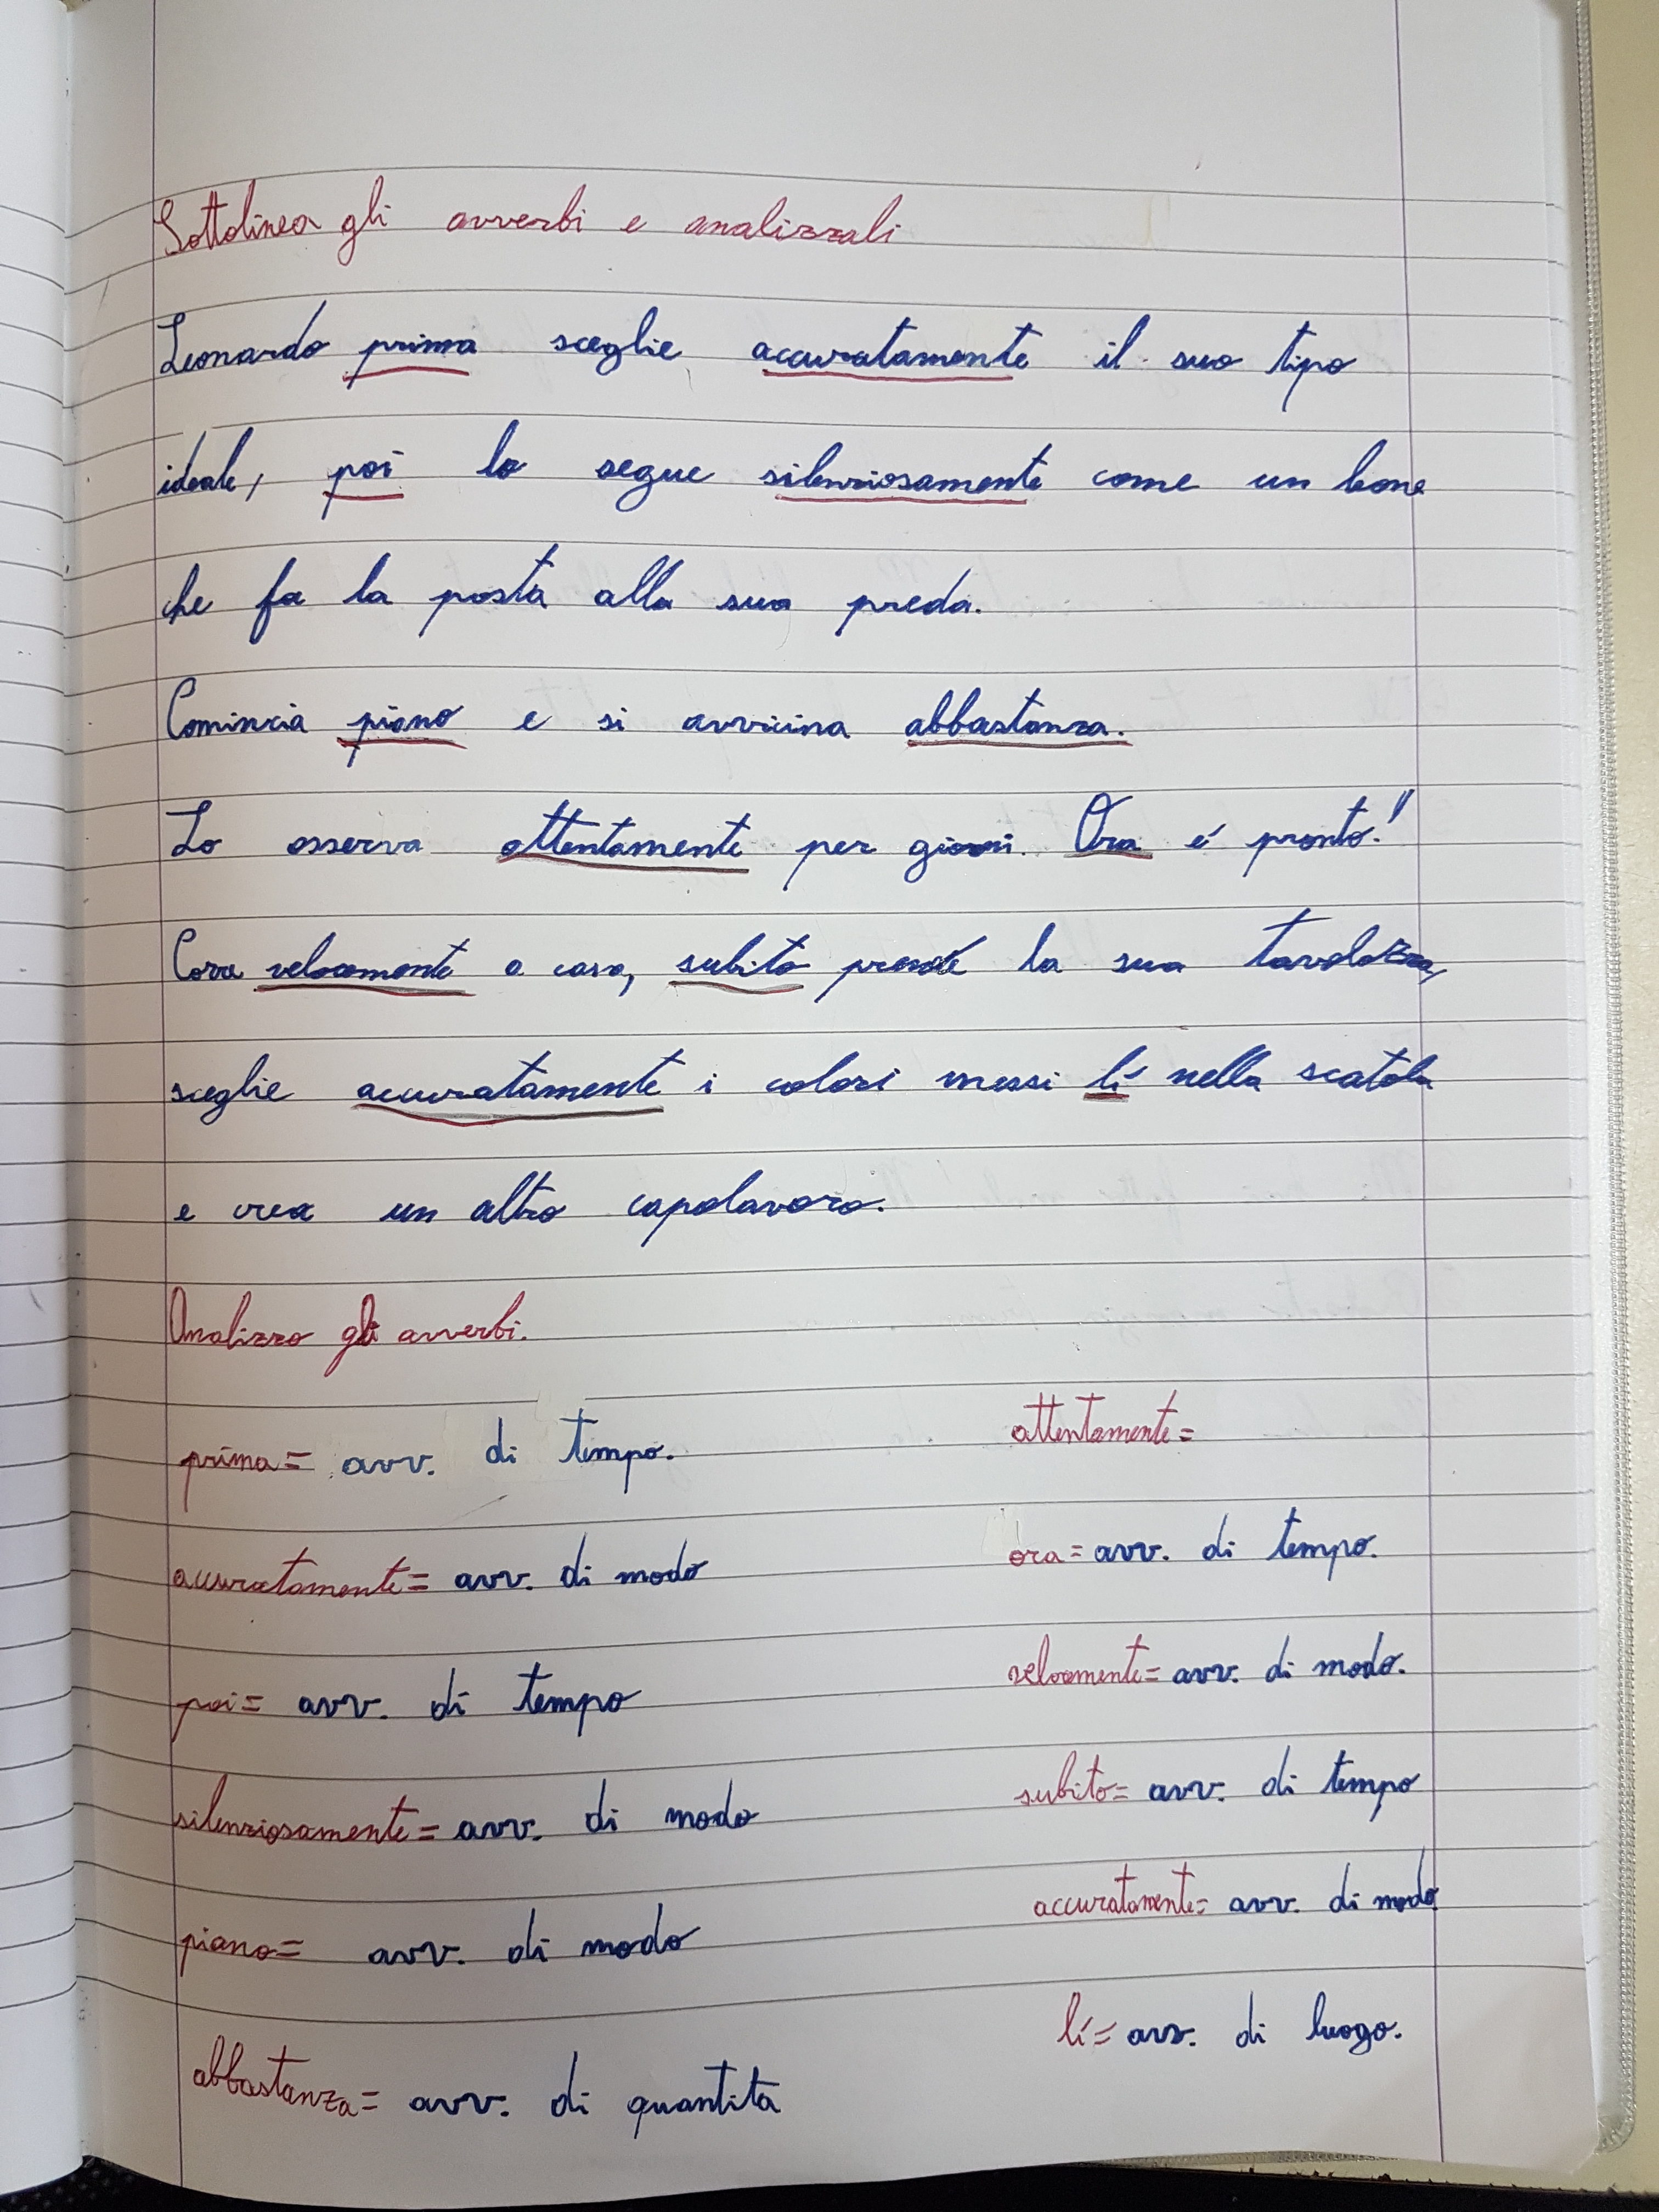 Sottolinea gli avverbi e analizzali
Leonardo prima sceglie accuratamente il suo tipo
ideale, poi lo segue silenziosamente come un leone
che fa la posta alla sua preda.
Comincia piano e si avvicina abbastanza.
Lo osserva attentamente per giorni. Ora é pronto!
Corre velocemente a casa, subito prende la sua tavolozza,
sceglie accuratamente i colori messi lí nella scatola
e crea un altro capolavoro.
Analizzo gli avverbi.
prima= avv. di tempo.
accuratamente= avv. di modo
poi= avv. di tempo
silenziosamente= avv. di modo
piano= avv. di modo
abbastanza= avv. di quantità
attentamente=
ora= avv. di tempo.
velocemente= avv. di modo.
subito= avv. di tempo
accuratamente= avv. di modo
lí= avv. di luogo.